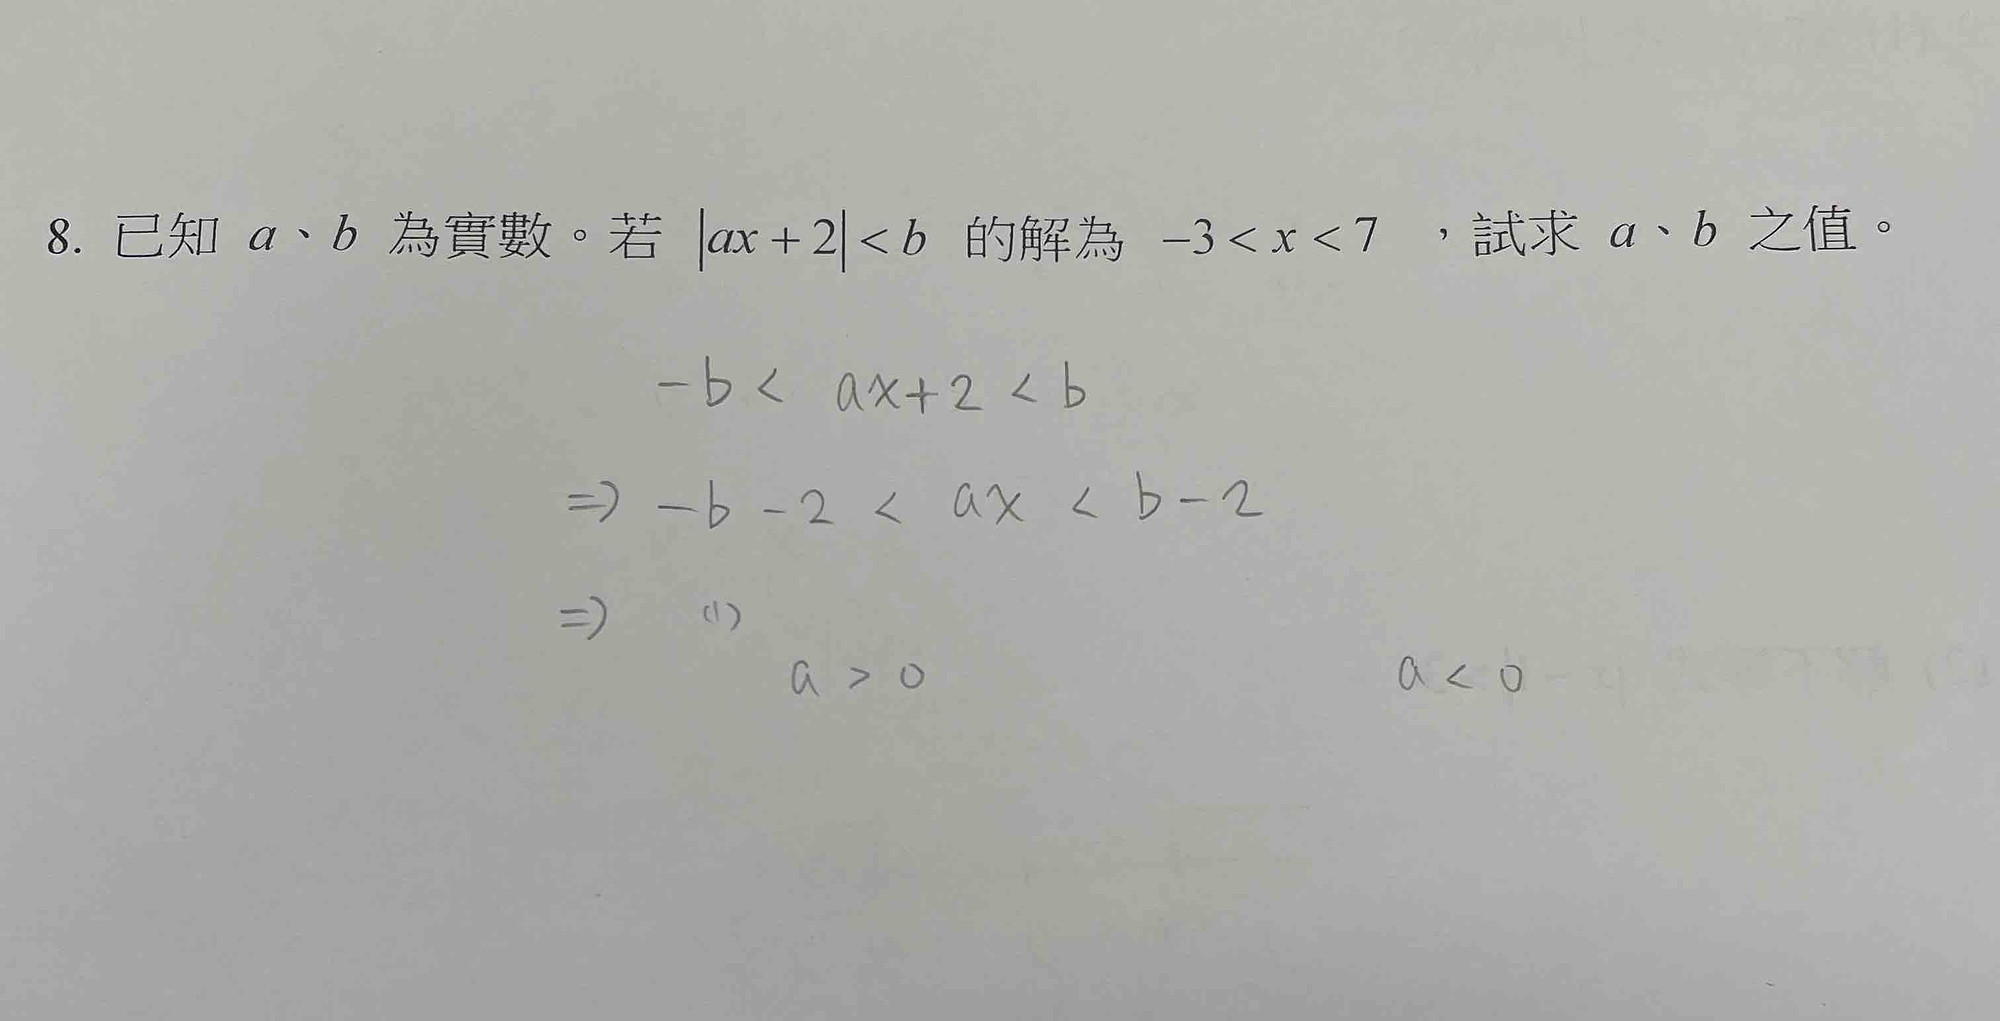 8. 已知 a、b 為實數。若 |ax + 2| < b 的解為 −3 < x < 7 ，試求 a、b 之值。
-b < ax+2 < b
=> -b - 2 < ax < b - 2
=> (1)
a > 0 a < 0